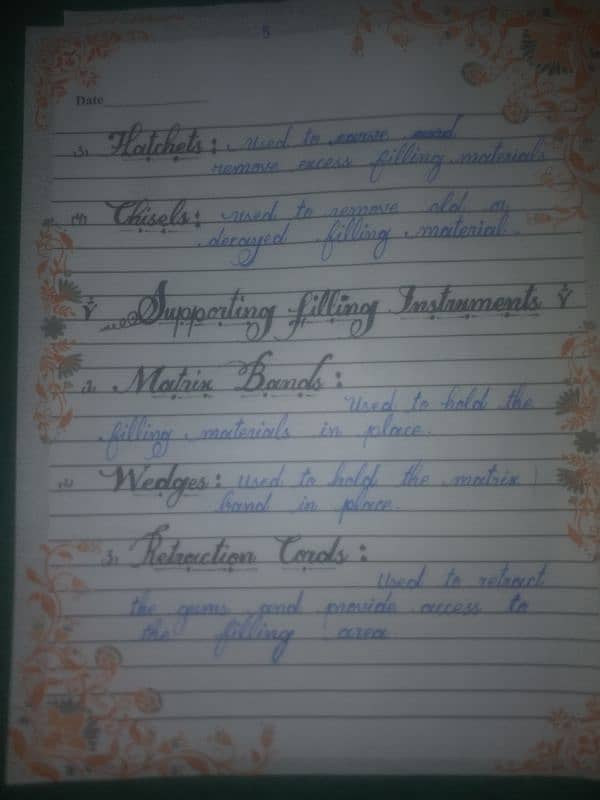 5
Date
3. Hatchets: Used to carve and
remove excess filling materials
4. Chisels: used to remove old or
decayed filling material.
Supporting filling Instruments
1. Matrix Bands:
Used to hold the
filling materials in place.
2. Wedges: used to hold the matrix
band in place.
3. Retraction Cords:
Used to retract
the gums and provide access to
the filling area